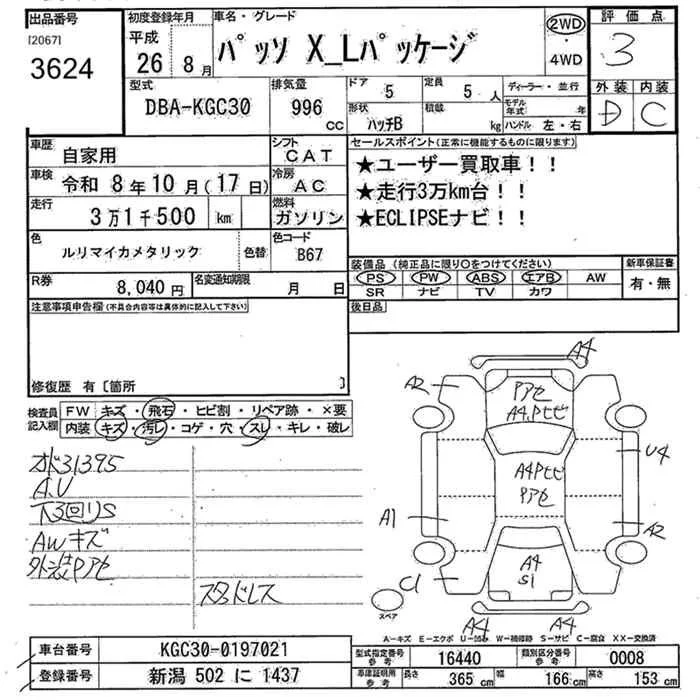 出品番号
[2067]
3624
初度登録年月
平成
26 8月
車名・グレード
パッソ X_Lパッケージ
2WD
・
4WD
評価点
3
外装 内装
D C
型式
DBA-KGC30
排気量
996 CC
ドア 5
定員 5 人
形状 ハッチB
積載 kg
ディーラー・並行
モデル年式 年
ハンドル 左・右
車歴 自家用
シフト CAT
車検 令和 8年10月(17日)
冷房 AC
走行 3万1千500 km
燃料 ガソリン
色 ルリマイカメタリック 色替
色コード B67
R券 8,040円
名変通知期限 月 日
セールスポイント(正常に機能するものに限ります)
★ユーザー買取車!!
★走行3万km台!!
★ECLIPSEナビ!!
装備品(純正品に限り○をつけてください)
PS PW ABS エアB AW
SR ナビ TV カワ
新車保証書
有・無
後日品
注意事項申告欄(不具合内容等は具体的に記入して下さい)
修復歴 有〔箇所 〕
検査員記入欄
FW キズ・飛石・ヒビ割・リペア跡・×要
内装 キズ・汚レ・コゲ・穴・スレ・キレ・破レ
オド31395
A.U
下3回りS
AWキズ
外装Pアセ
スタッドレス
A4
A2
Pアセ
A4.Pヒビ
U4
A4Pヒビ
Pアセ
A1
A2
A4
S1
C1
スペア
A4
A4
A-キズ E-エクボ U-凹み W-補修跡 S-サビ C-腐食 XX-交換済
車台番号 KGC30-0197021
登録番号 新潟 502 に 1437
型式指定番号 参考 16440
類別区分番号 参考 0008
車庫証明用 参考
長さ 365cm
幅 166cm
高さ 153cm